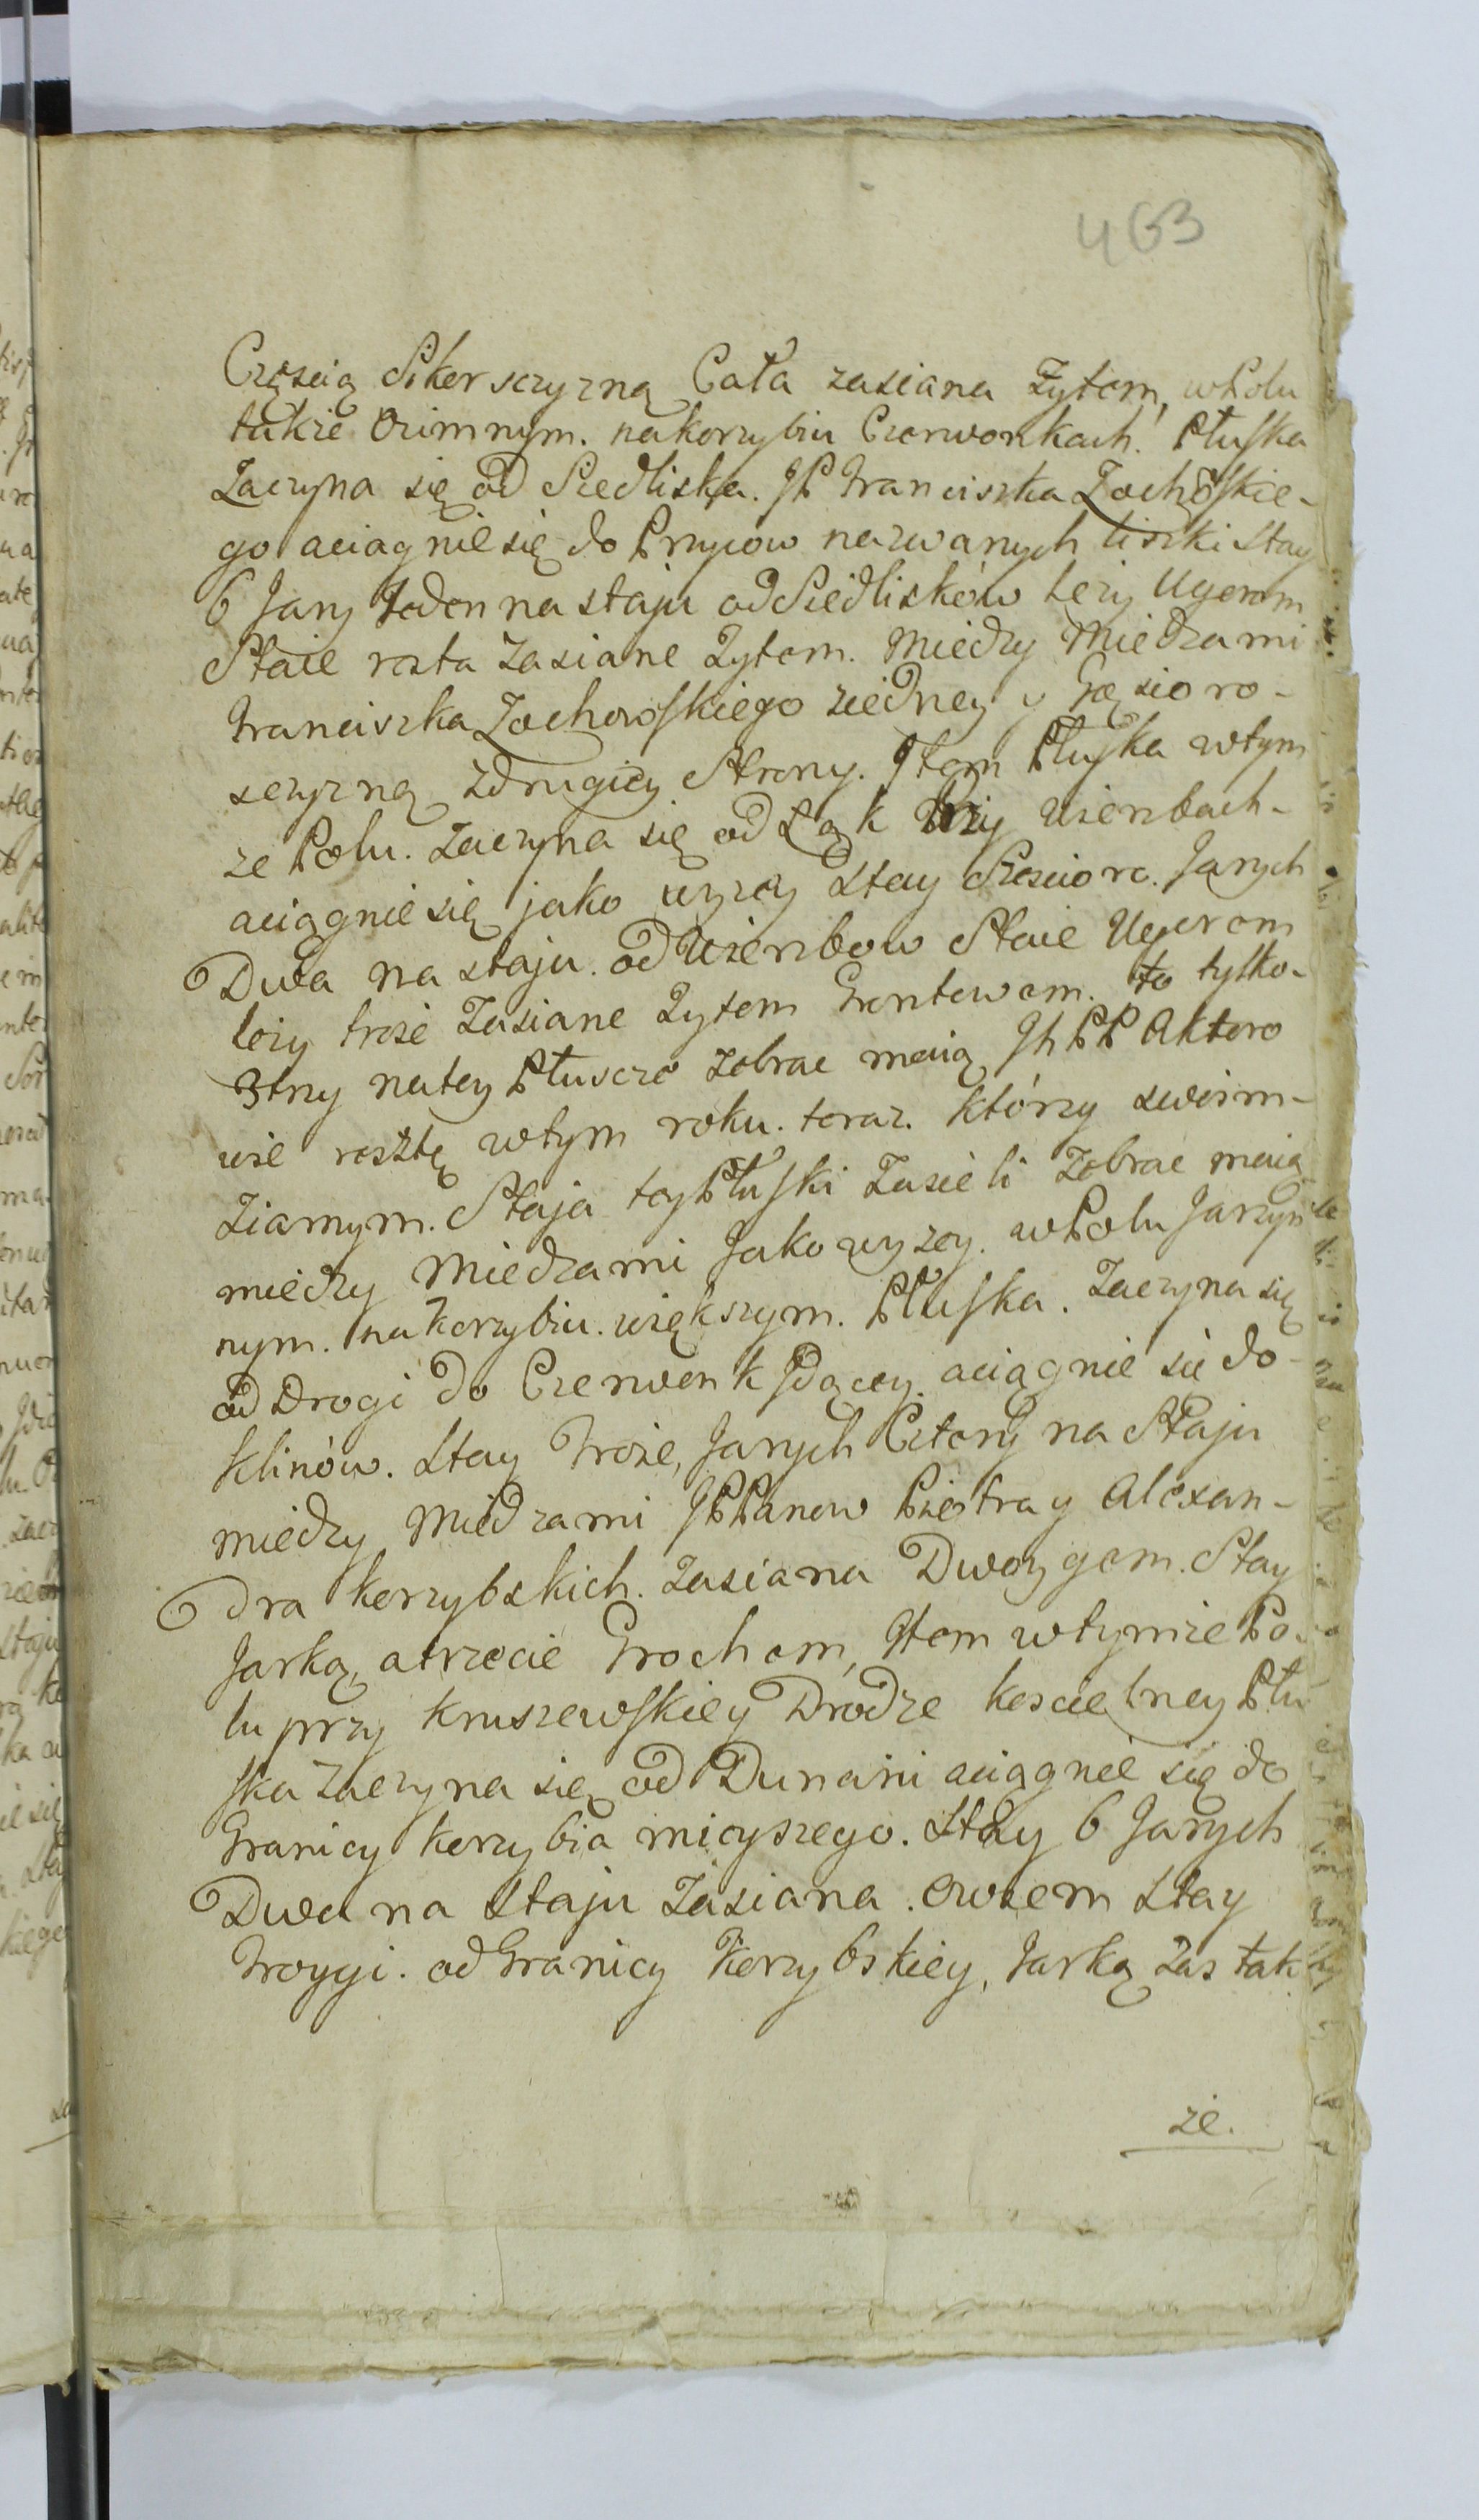 463
Częscią Sikorsczyzną Cała zasiana Zytem, wPolu
także Ozimnym. na korzybiu Czerwonkach. Płuska
Zaczyna się od Siedliska. JP Franciszka Zochowskie-
go aciągnie się do Prusow nazwanych liszki Stay
6 Jany Jeden na staju od Siedlisków leży Ugorem
Staie reszta Zasiane Zytem. Między Miedzami
Franciszka Zochowskiego ziedney y Gąsioro-
sczyzną zdrugiey Strony. Item Płuska wtym
że Polu. Zaczyna się od Łąk Przy Wierzbach-
aciągnie się jako wyzey Stay Sześcioro. Janych
Dwa na staju. od Wierzbow Staie Ugorem
leży troie Zasiane Zytem Grontowem. to tylko-
3trzy natey Płuscze Zebrac maią Jch PP Aktoro
wie resztę wtym roku. teraz. którzy swoim-
Ziarnym. Staja tey Płuski Zasieli Zebrac maią
między Miedzami Jako wyzey. wPolu Jarzyn
nym. na korzybiu. większym. Płuska. Zaczyna się
od Drogi do Czerwonk Jdącey. aciągnie sie do-
Klinów. Stay troie, Janych Cztery na Staju
między Miedzami JPPanow Piotra y Alexan-
dra korzybskich. Zasiana Dwoygem. Stay
Jarką, atrzecie Grochem, Item wtymże Po-
lu przy Kruszewskiey Drodze koscielney Płu
ska Zaczyna się od Dunani aciągnie się do
Granicy korzybia mieyszego. Stay 6 Janych
Dwa na Staju Zasiana. owsem Stay
Troygi. od Granicy Korzybskiey, Jarką zas tak
że.